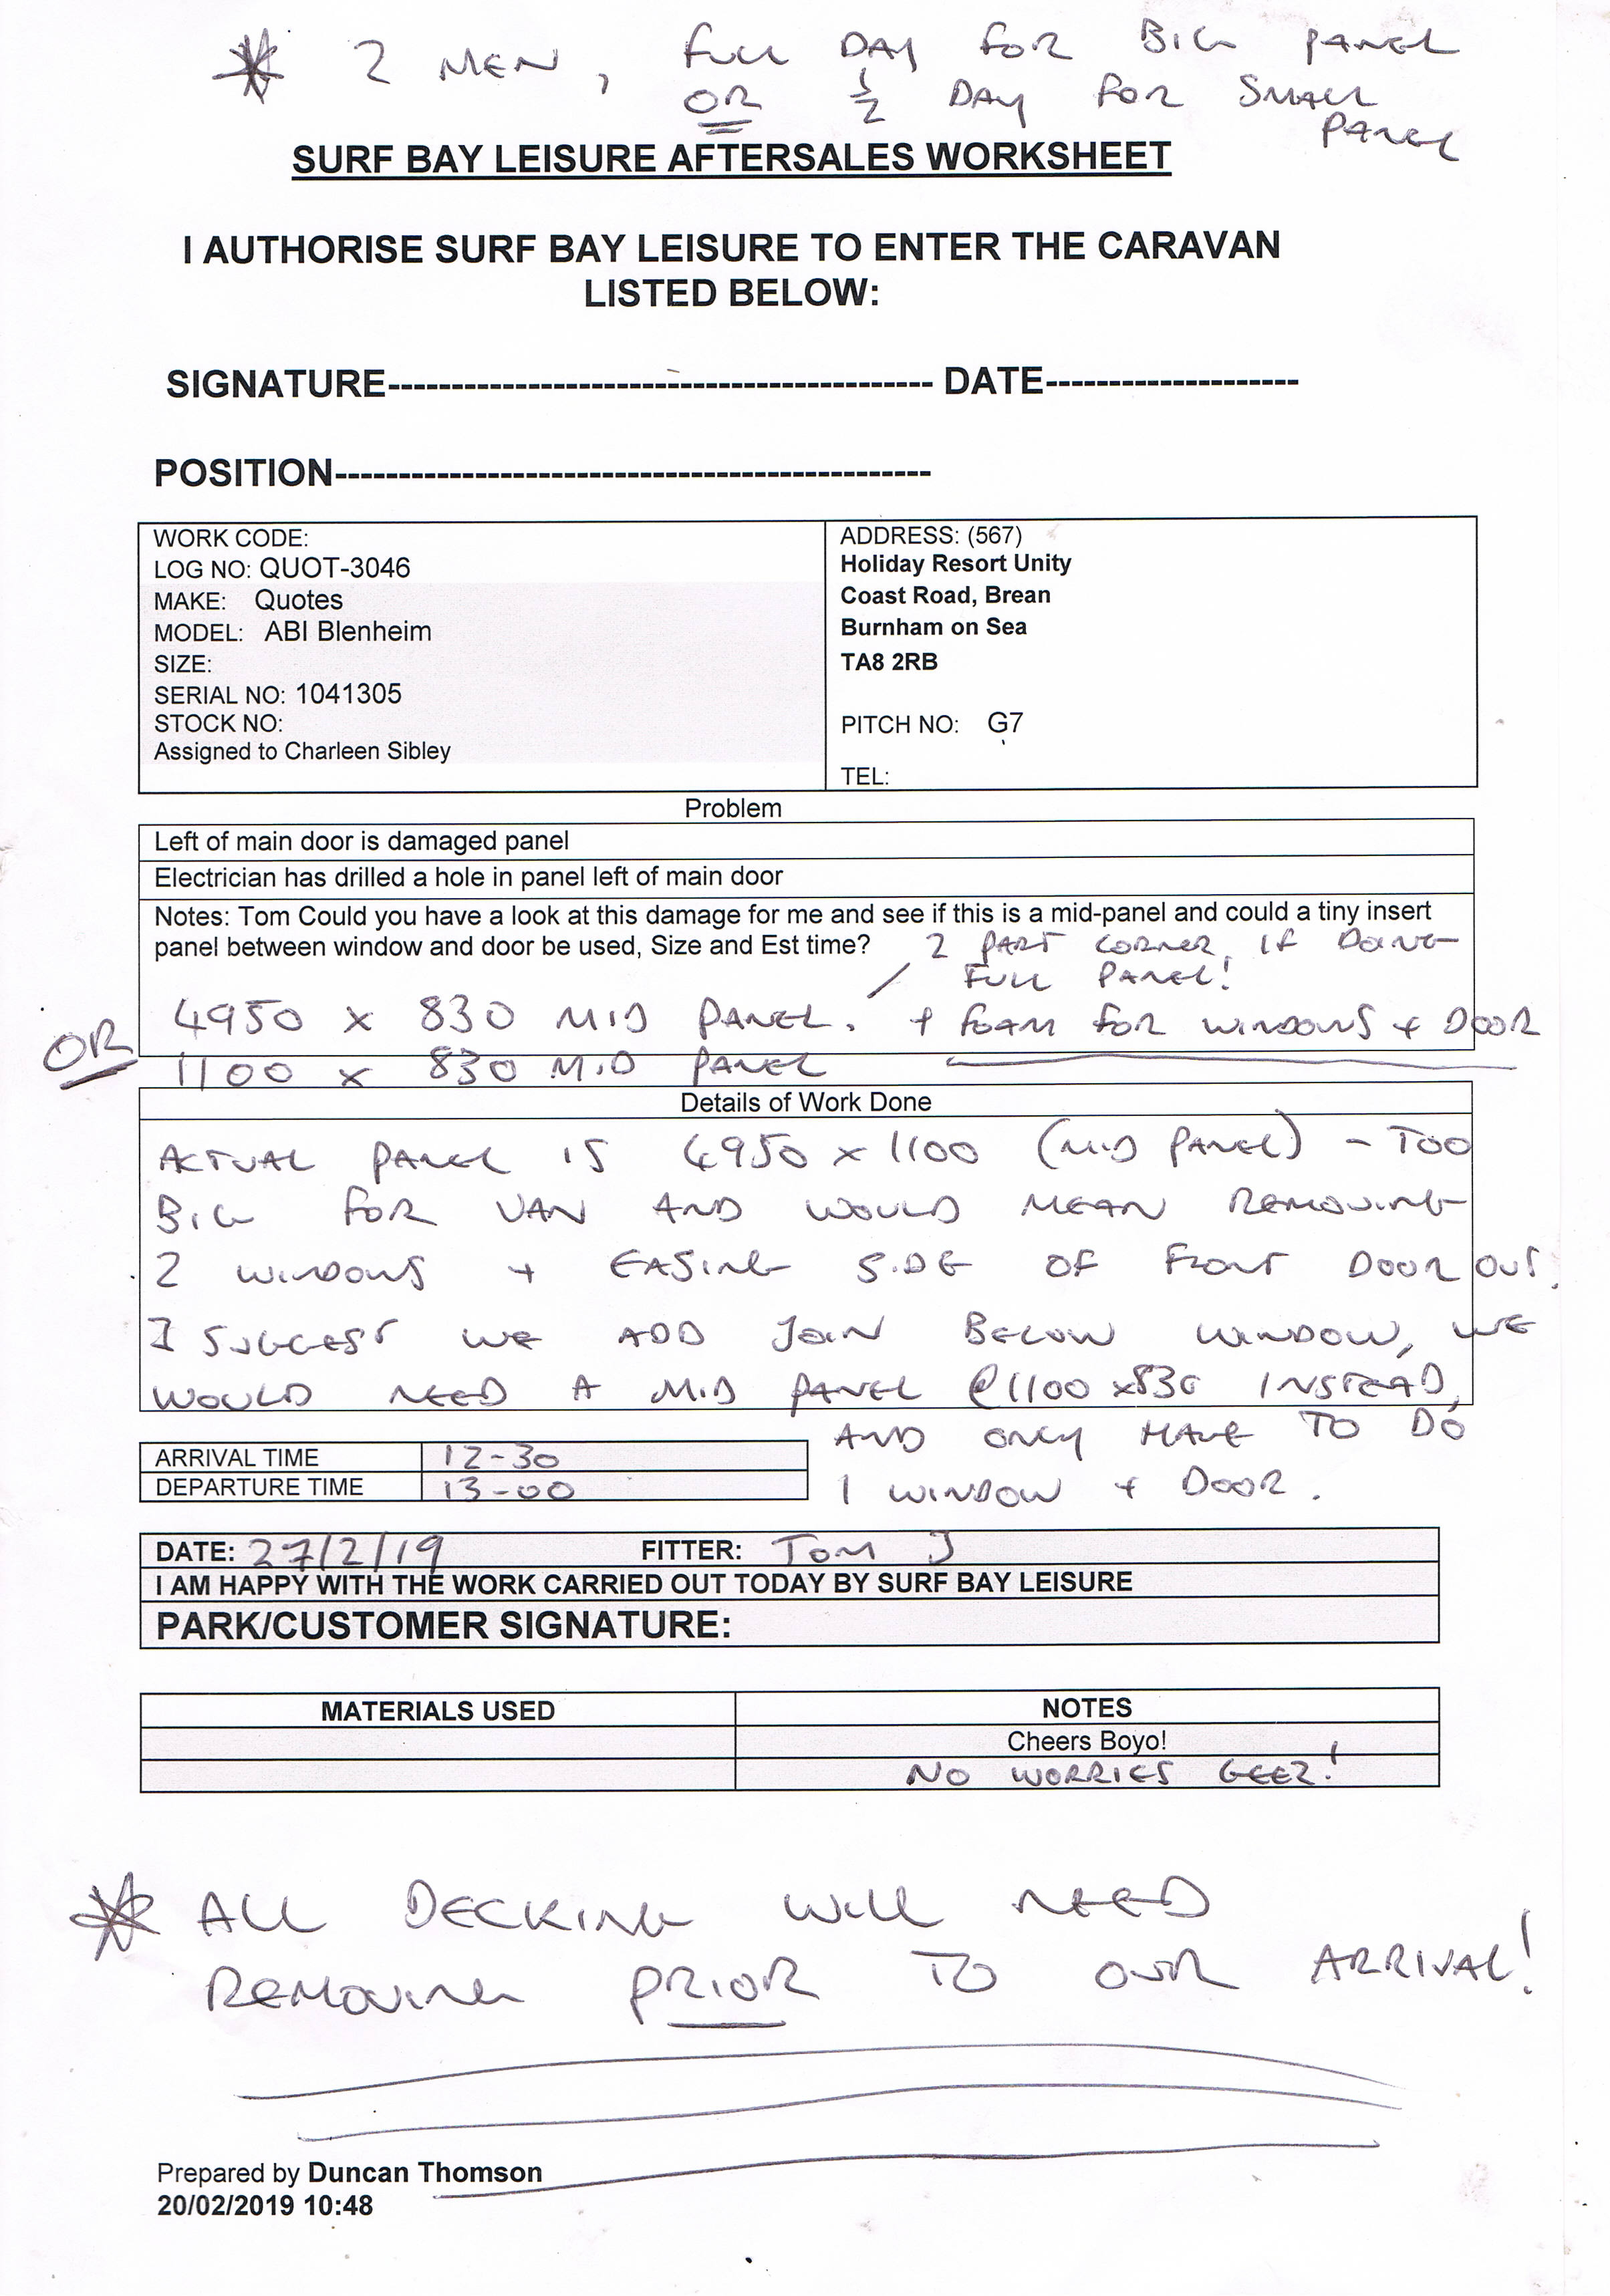 * 2 MEN, FULL DAY FOR BIG PANEL
OR ½ DAY FOR SMALL
PANEL
SURF BAY LEISURE AFTERSALES WORKSHEET
I AUTHORISE SURF BAY LEISURE TO ENTER THE CARAVAN
LISTED BELOW:
SIGNATURE------------------------------------------- DATE--------------------
POSITION-----------------------------------------------
WORK CODE:
LOG NO: QUOT-3046
MAKE: Quotes
MODEL: ABI Blenheim
SIZE:
SERIAL NO: 1041305
STOCK NO:
Assigned to Charleen Sibley
ADDRESS: (567)
Holiday Resort Unity
Coast Road, Brean
Burnham on Sea
TA8 2RB
PITCH NO: G7
TEL:
Problem
Left of main door is damaged panel
Electrician has drilled a hole in panel left of main door
Notes: Tom Could you have a look at this damage for me and see if this is a mid-panel and could a tiny insert
panel between window and door be used, Size and Est time?
2 PART CORNER, IF DOING
FULL PANEL!
4950 x 830 MID PANEL. + FOAM FOR WINDOWS + DOOR
OR
1100 x 830 MID PANEL
Details of Work Done
ACTUAL PANEL IS 4950 x 1100 (MID PANEL) - TOO
BIG FOR VAN AND WOULD MEAN REMOVING
2 WINDOWS + EASING SIDE OF FRONT DOOR OUT.
I SUGGEST WE ADD JOIN BELOW WINDOW, WE
WOULD NEED A MID PANEL @ 1100 x 830 INSTEAD,
AND ONLY HAVE TO DO
1 WINDOW + DOOR.
ARRIVAL TIME 12-30
DEPARTURE TIME 13-00
DATE: 27/2/19 FITTER: TOM J
I AM HAPPY WITH THE WORK CARRIED OUT TODAY BY SURF BAY LEISURE
PARK/CUSTOMER SIGNATURE:
MATERIALS USED NOTES
Cheers Boyo!
NO WORRIES GEEZ!
* ALL DECKING WILL NEED
REMOVING PRIOR TO OUR ARRIVAL!
Prepared by Duncan Thomson
20/02/2019 10:48